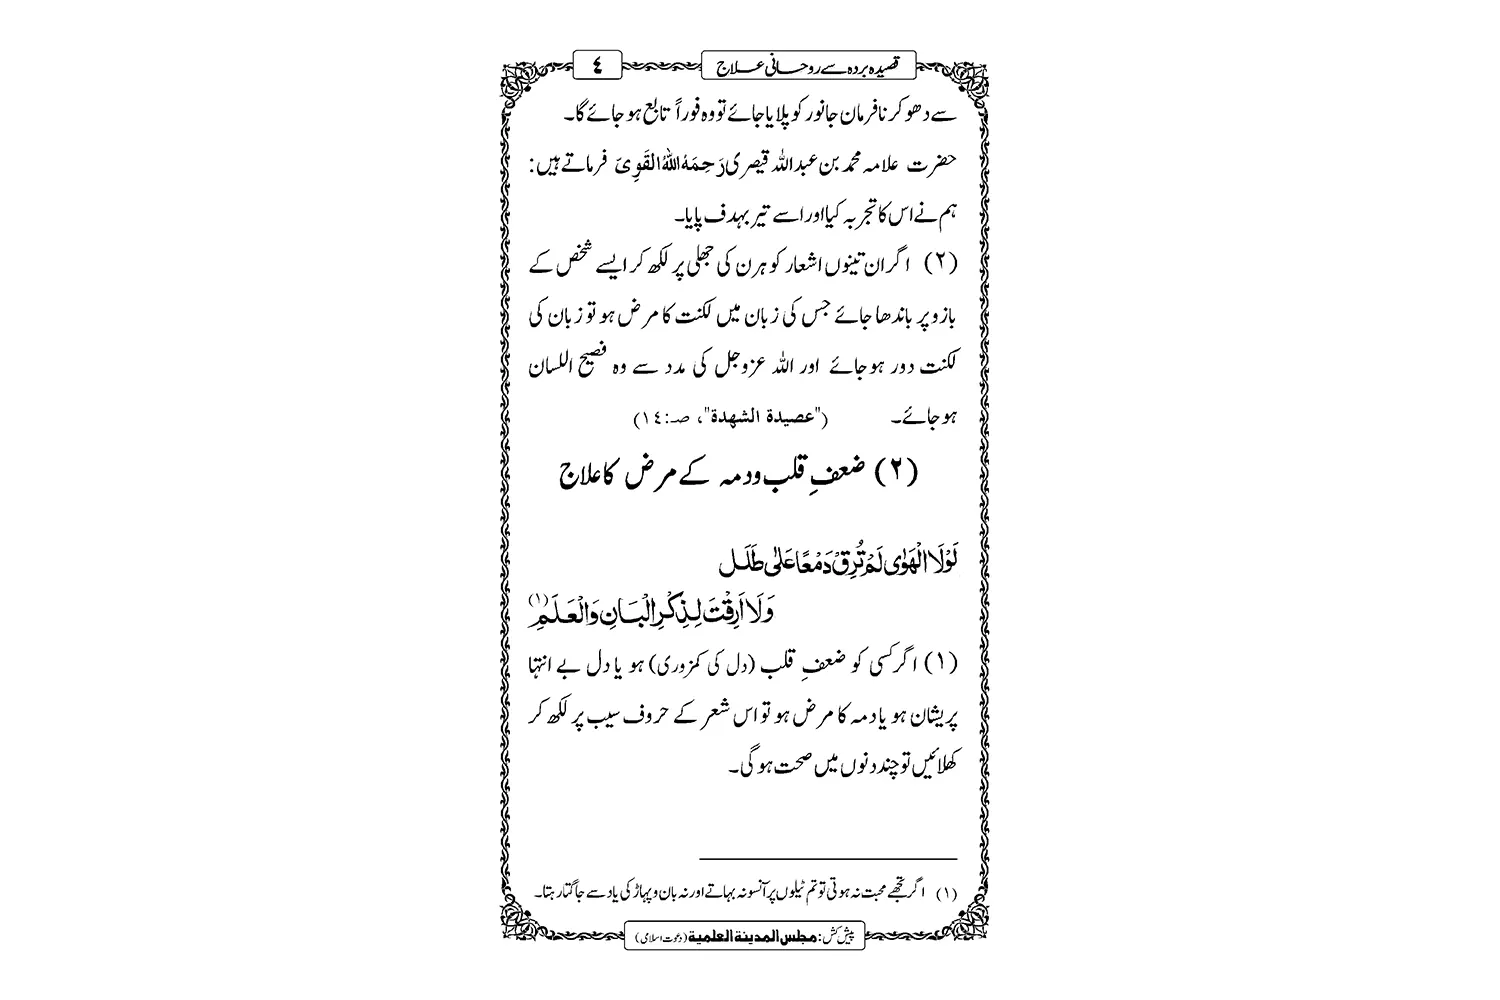 قصیدہ بردہ سے روحانی علاج
٤
سے دھو کر نافرمان جانور کو پلایا جائے تو وہ فوراً تابع ہو جائے گا۔
حضرت علامہ محمد بن عبداللہ قیصری رَحِمَهُ اللهُ القَوِی فرماتے ہیں:
ہم نے اس کا تجربہ کیا اور اسے تیر بہدف پایا۔
(۲) اگر ان تینوں اشعار کو ہرن کی جھلی پر لکھ کر ایسے شخص کے
بازو پر باندھا جائے جس کی زبان میں لکنت کا مرض ہو تو زبان کی
لکنت دور ہو جائے اور اللہ عزوجل کی مدد سے وہ فصیح اللسان
ہو جائے۔ ("عصيدة الشهدة"، صـ:١٤)
(۲) ضعفِ قلب ودمہ کے مرض کا علاج
لَوْلَا الْهَوٰى لَمْ تُرِقْ دَمْعًا عَلٰى طَلَلٍ
وَلَا اَرِقْتَ لِذِكْرِ الْبَانِ وَالْعَلَمِ (۱)
(۱) اگر کسی کو ضعفِ قلب (دل کی کمزوری) ہو یا دل بے انتہا
پریشان ہو یا دمہ کا مرض ہو تو اس شعر کے حروف سیب پر لکھ کر
کھلائیں تو چند دنوں میں صحت ہو گی۔
(۱) اگر تجھے محبت نہ ہوتی تو تم ٹیلوں پر آنسو نہ بہاتے اور نہ بان و پہاڑ کی یاد سے جاگتا رہتا۔
پیش کش: مجلس المدینة العلمیة (دعوت اسلامی)